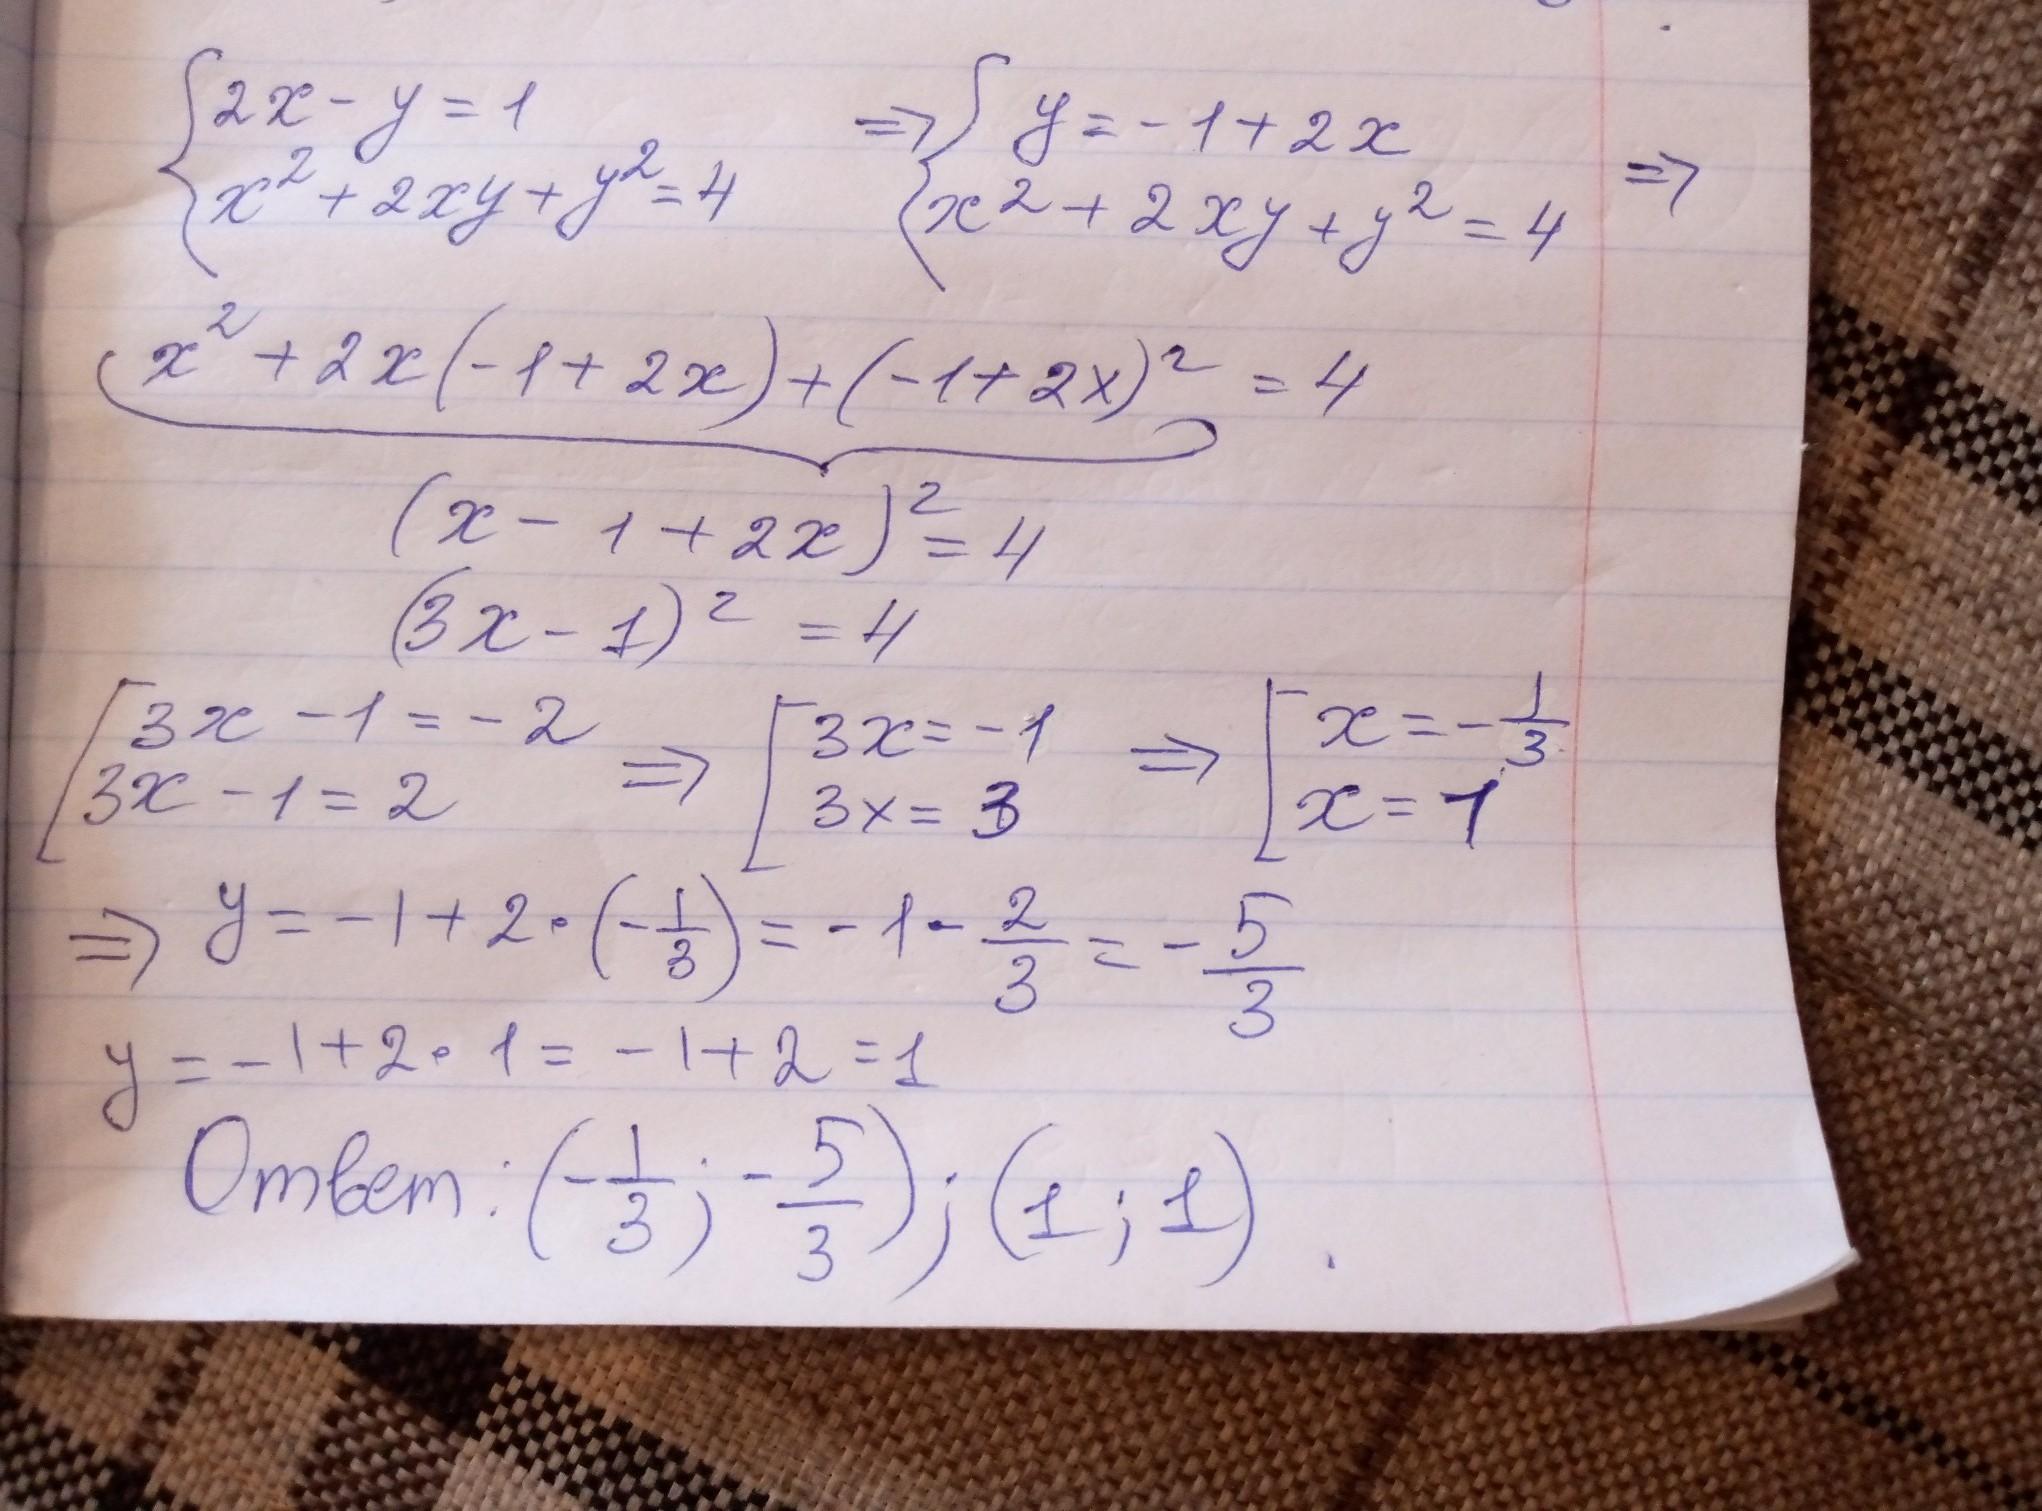 {2x - y = 1 => {y = -1 + 2x =>
{x² + 2xy + y² = 4 {x² + 2xy + y² = 4
x² + 2x(-1 + 2x) + (-1 + 2x)² = 4
(x - 1 + 2x)² = 4
(3x - 1)² = 4
[3x - 1 = -2 => [3x = -1 => [x = -1/3
[3x - 1 = 2 [3x = 3 [x = 1
=> y = -1 + 2 · (-1/3) = -1 - 2/3 = -5/3
y = -1 + 2 · 1 = -1 + 2 = 1
Ответ: (-1/3; -5/3); (1; 1).